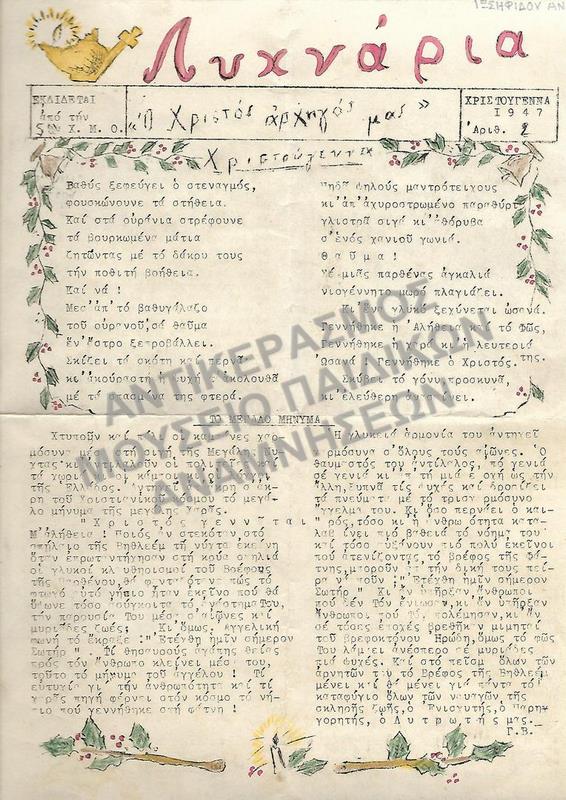 ΙΩΣΗΦΙΔΟΥ ΑΝ
Λυχνάρια
ΕΚΔΙΔΕΤΑΙ
ἀπό τήν
Χ.Μ.Ο.
«Ὁ Χριστός ἀρχηγός μας»
ΧΡΙΣΤΟΥΓΕΝΝΑ
1947
Ἀριθ. 2
Χριστούγεννα
Βαθύς ξεφεύγει ὁ στεναγμός,
φουσκώνουνε τά στήθεια.
Καί στά οὐράνια στρέφουνε
τά βουρκωμένα μάτια
ζητῶντας μέ τό δάκρυ τους
τήν ποθητή βοήθεια.
Καί νά !
Μεσ' ἀπ' τό βαθυγάλαζο
τοῦ οὐρανοῦ, σά θαῦμα
ἕν' ἄστρο ξεπροβάλλει.
Σκίζει τά σκότη καί περνᾶ
κι' ἀκούραστα
μέ τά φτερά.
Πηδᾶ ψηλούς μαντρότειχους
κι' ἀπ' ἀχυροστρωμένο παραθύρι
γλιστρᾶ σιγά κι' ἀθόρυβα
σ' ἑνός χανιοῦ γωνιά.
Θ α ῦ μ α !
Σέ μιᾶς παρθένας ἀγκαλιά
νιογέννητο μωρό πλαγιάζει.
Κι' ἕνα γλυκό ξεχύνεται ὡσανά.
Γεννήθηκε ἡ Ἀλήθεια καί τό Φῶς,
Γεννήθηκε ἡ Χαρά καί λευτεριά
Ὡσανά ! Γεννήθηκε ὁ Χριστός. της.
Σκύβει τό γόνυ, προσκυνᾶ,
κι' ἐλεύθερη
ΤΟ ΜΕΓΑΛΟ ΜΗΝΥΜΑ
Χτυποῦν καί πάλι οἱ καμπάνες χαρ-
μόσυνα μέσα στή σιγή τῆς Μεγάλης νύ-
χτας κι' ἀντηχοῦν οἱ πολιτεῖες καί
τά χωριά. Οἱ κάμποι
τῆς Ἑλλάδος,
ρη τοῦ Χριστιανικοῦ κόσμου τό μεγά-
λο μήνυμα τῆς μεγάλης χαρᾶς.
" Χ ρ ι σ τ ό ς γ ε ν ν ᾶ τ α ι "
Μ' ἀλήθεια ! Ποιός ἄν στεκόταν στό
σπήλαιο τῆς Βηθλεέμ τή νύχτα ἐκείνη
ὅταν ἐπρωταντήχησαν στή κρύα σπηλιά
οἱ γλυκοί κλαυθμηρισμοί τοῦ Βρέφους
τῆς Παρθένου, θά φανταζόταν πώς τό
φτωχό αὐτό νήπιο ἦταν ἐκεῖνο πού θά
ὕψωνε τόσο
τήν παρουσία Του μέσα σ' αἰῶνες καί
μυριάδες ζωές; Κι' ὅμως, ἀγγελική
φωνή τό ἔκραξε :" Ἐτέχθη ἡμῖν σήμερον
Σωτήρ " . Τί θησαυρούς ἀγάπης θείας
πρός τόν ἄνθρωπο κλείνει μέσα του,
τοῦτο τό μήνυμα τοῦ ἀγγέλου ! Τί
εὐτυχία γιά τήν ἀνθρωπότητα καί τί
χαρᾶς πηγή φέρνει στόν κόσμο τό νή-
πιο πού γεννήθηκε στή φάτνη !
Ἡ γλυκειά ἁρμονία του ἀντηχεῖ
ἁρμόσυνα σ' ὅλους τούς αἰῶνες. Ὁ
θαυμαστός του ἀντίλαλος, ἀπό γενιά
σέ γενιά κι' ἀπ' τή μιά ἐποχή ὡς τήν
ἄλλη, ξυπνᾶ τίς ψυχές καί δροσίζει
τά πνεύματα μέ τό τρισχαρμόσυνο
ἄγγελμά του. Κι' ὅσο περνάει ὁ και-
ρός, τόσο κι' ἡ ἀνθρωπότητα κατα-
λαβαίνει πιό βαθειά τό νόημά του
καί τόσο αὐξάνουν πιό πολύ ἐκεῖνοι
πού ἀτενίζοντας τό Βρέφος τῆς Φά-
τνης, μποροῦν ἀπ' τήν δική τους πεῖ-
ρα νά ποῦν !" Ἐτέχθη ἡμῖν σήμερον
Σωτήρ " Κι' ἄν ὑπῆρξαν ἄνθρωποι
πού δέν Τόν ἔνιωσαν, κι' ἄν ὑπῆρξαν
ἄνθρωποι πού Τόν πολέμησαν, κι' ἄν
σέ τόσες ἐποχές βρέθηκαν μιμηταί
τοῦ βρεφοκτόνου Ἡρώδη, ὅμως τό φῶς
Του λάμπει ἀνέσπερο σέ μυριάδες
πιά ψυχές. Καί στό πεῖσμα ὅλων τῶν
ἀρνητῶν του τό Βρέφος τῆς Βηθλεέμ
μένει καί θά μένει γιά πάντα τό
καταφύγιο ὅλων τῶν ναυαγῶν τῆς
σκληρῆς ζωῆς, ὁ Ἐνισχυτής, ὁ Παρη-
γορητής, ὁ Λ υ τ ρ ω τ ή ς μας.
Γ.Β.
ΑΝΤΙΚΕΡΑΣΜΟΣ
ΜΟΥΣΕΙΟ ΠΑΙΔΙΚΩΝ
ΑΝΑΜΝΗΣΕΩΝ